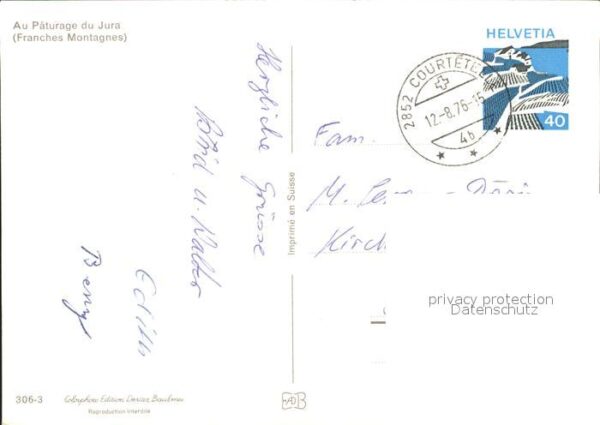 Au Pâturage du Jura
(Franches Montagnes)
HELVETIA
40
2852 COURTÉTE
12.-8.76-15
4b
Herzliche Grüsse
u. Walter
Edith
Benny
Fam.
M.
Kirch
Imprimé en Suisse
privacy protection
Datenschutz
306-3
Colorphoto Edition Enrico Baulmes
Reproduction interdite